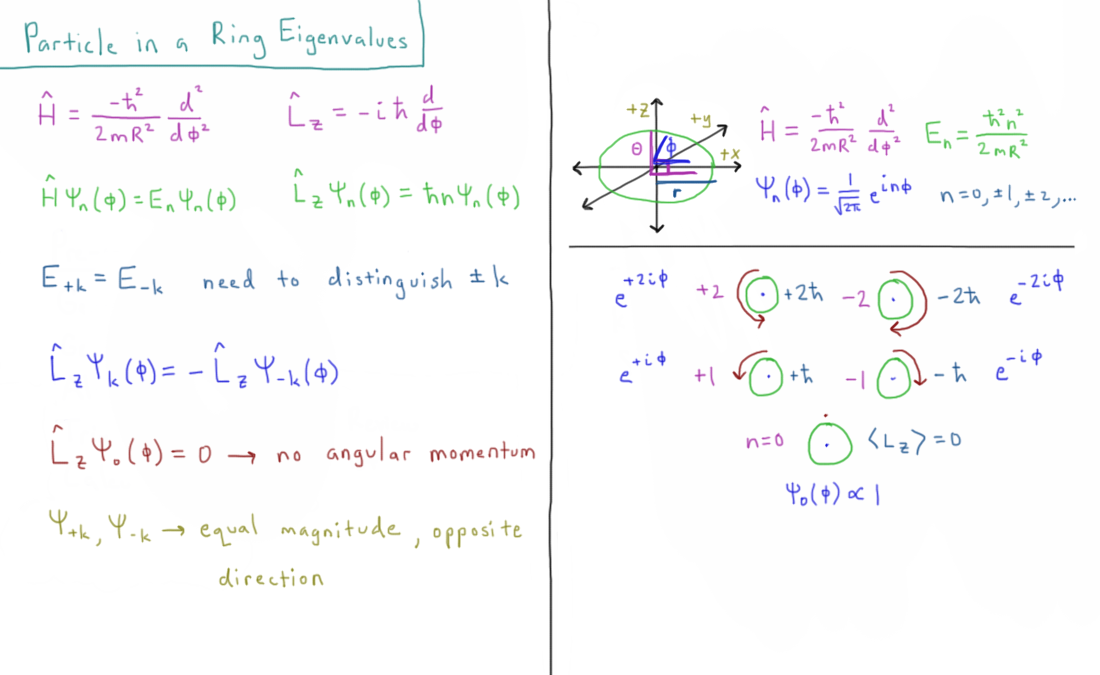 Particle in a Ring Eigenvalues
Ĥ = -ħ²/2mR² d²/dφ²    L̂z = -iħ d/dφ
ĤΨn(φ) = EnΨn(φ)    L̂zΨn(φ) = ħnΨn(φ)
E+k = E-k need to distinguish ±k
L̂zΨk(φ) = -L̂zΨ-k(φ)
L̂zΨ₀(φ) = 0 → no angular momentum
Ψ+k, Ψ-k → equal magnitude, opposite
direction
+z
+y
θ φ
+x
r
Ĥ = -ħ²/2mR² d²/dφ²    En = ħ²n²/2mR²
Ψn(φ) = 1/√2π e^inφ    n=0, ±1, ±2, ...
e^+2iφ +2 +2ħ -2 -2ħ e^-2iφ
e^+iφ +1 +ħ -1 -ħ e^-iφ
n=0 ⟨Lz⟩=0
Ψ₀(φ) ∝ 1